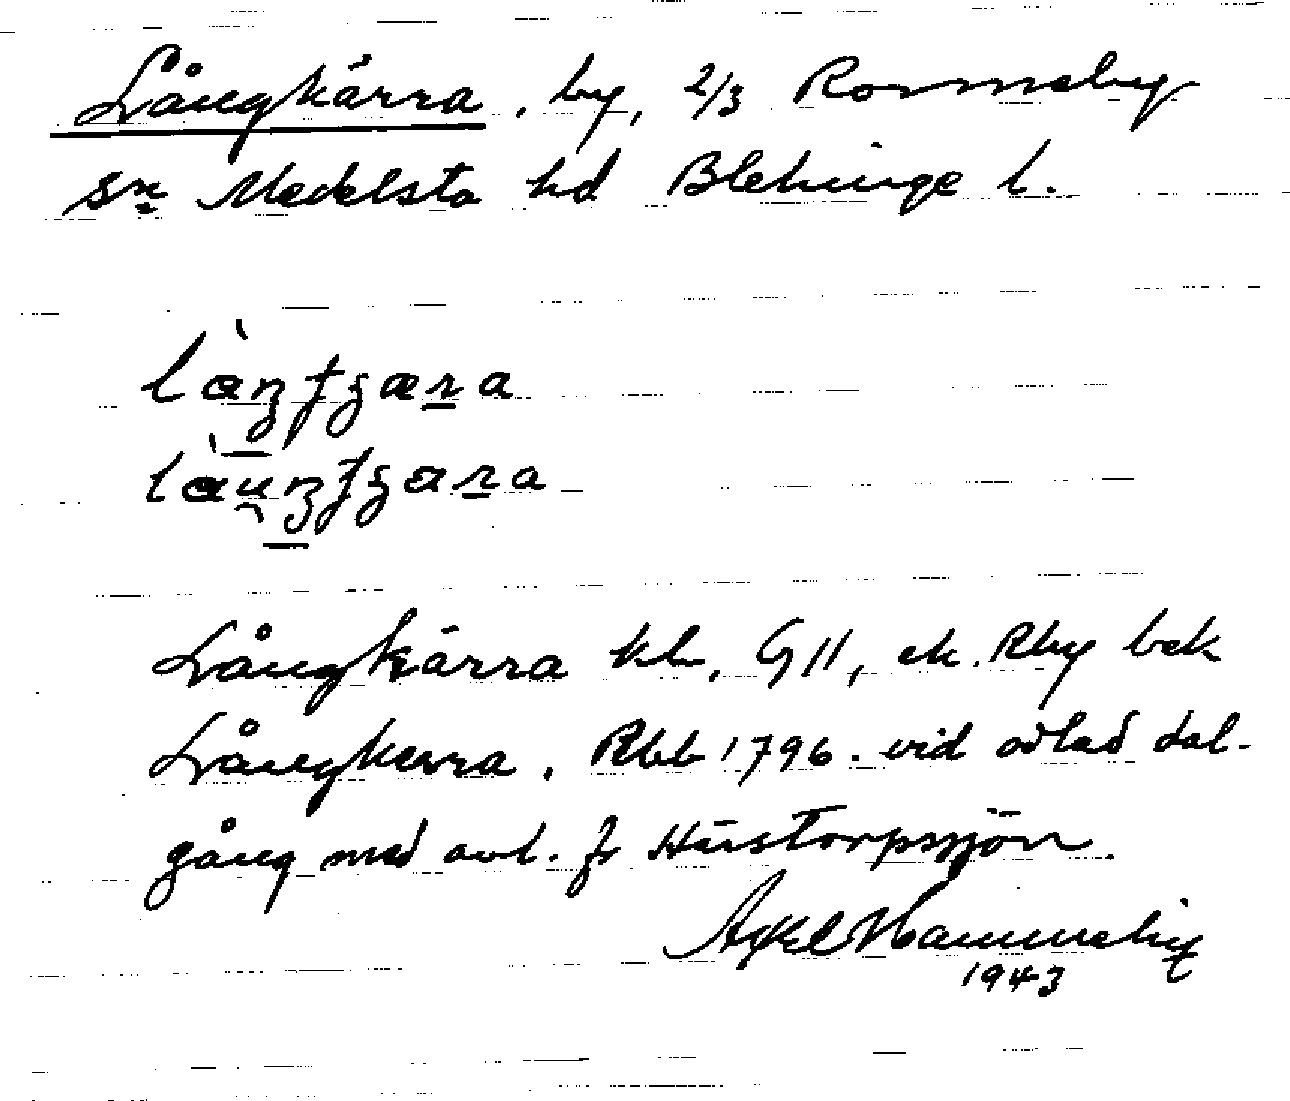 Långkärra, by, 2/3 Ronneby
sn Medelsta hd Blekinge l.
Långkärra kb, G11, ek. Rby bek
Långkerra, Rbb 1796. vid odlad dal-
gång med avl. fr Härstorpssjön.
Axel Hammeby
1943